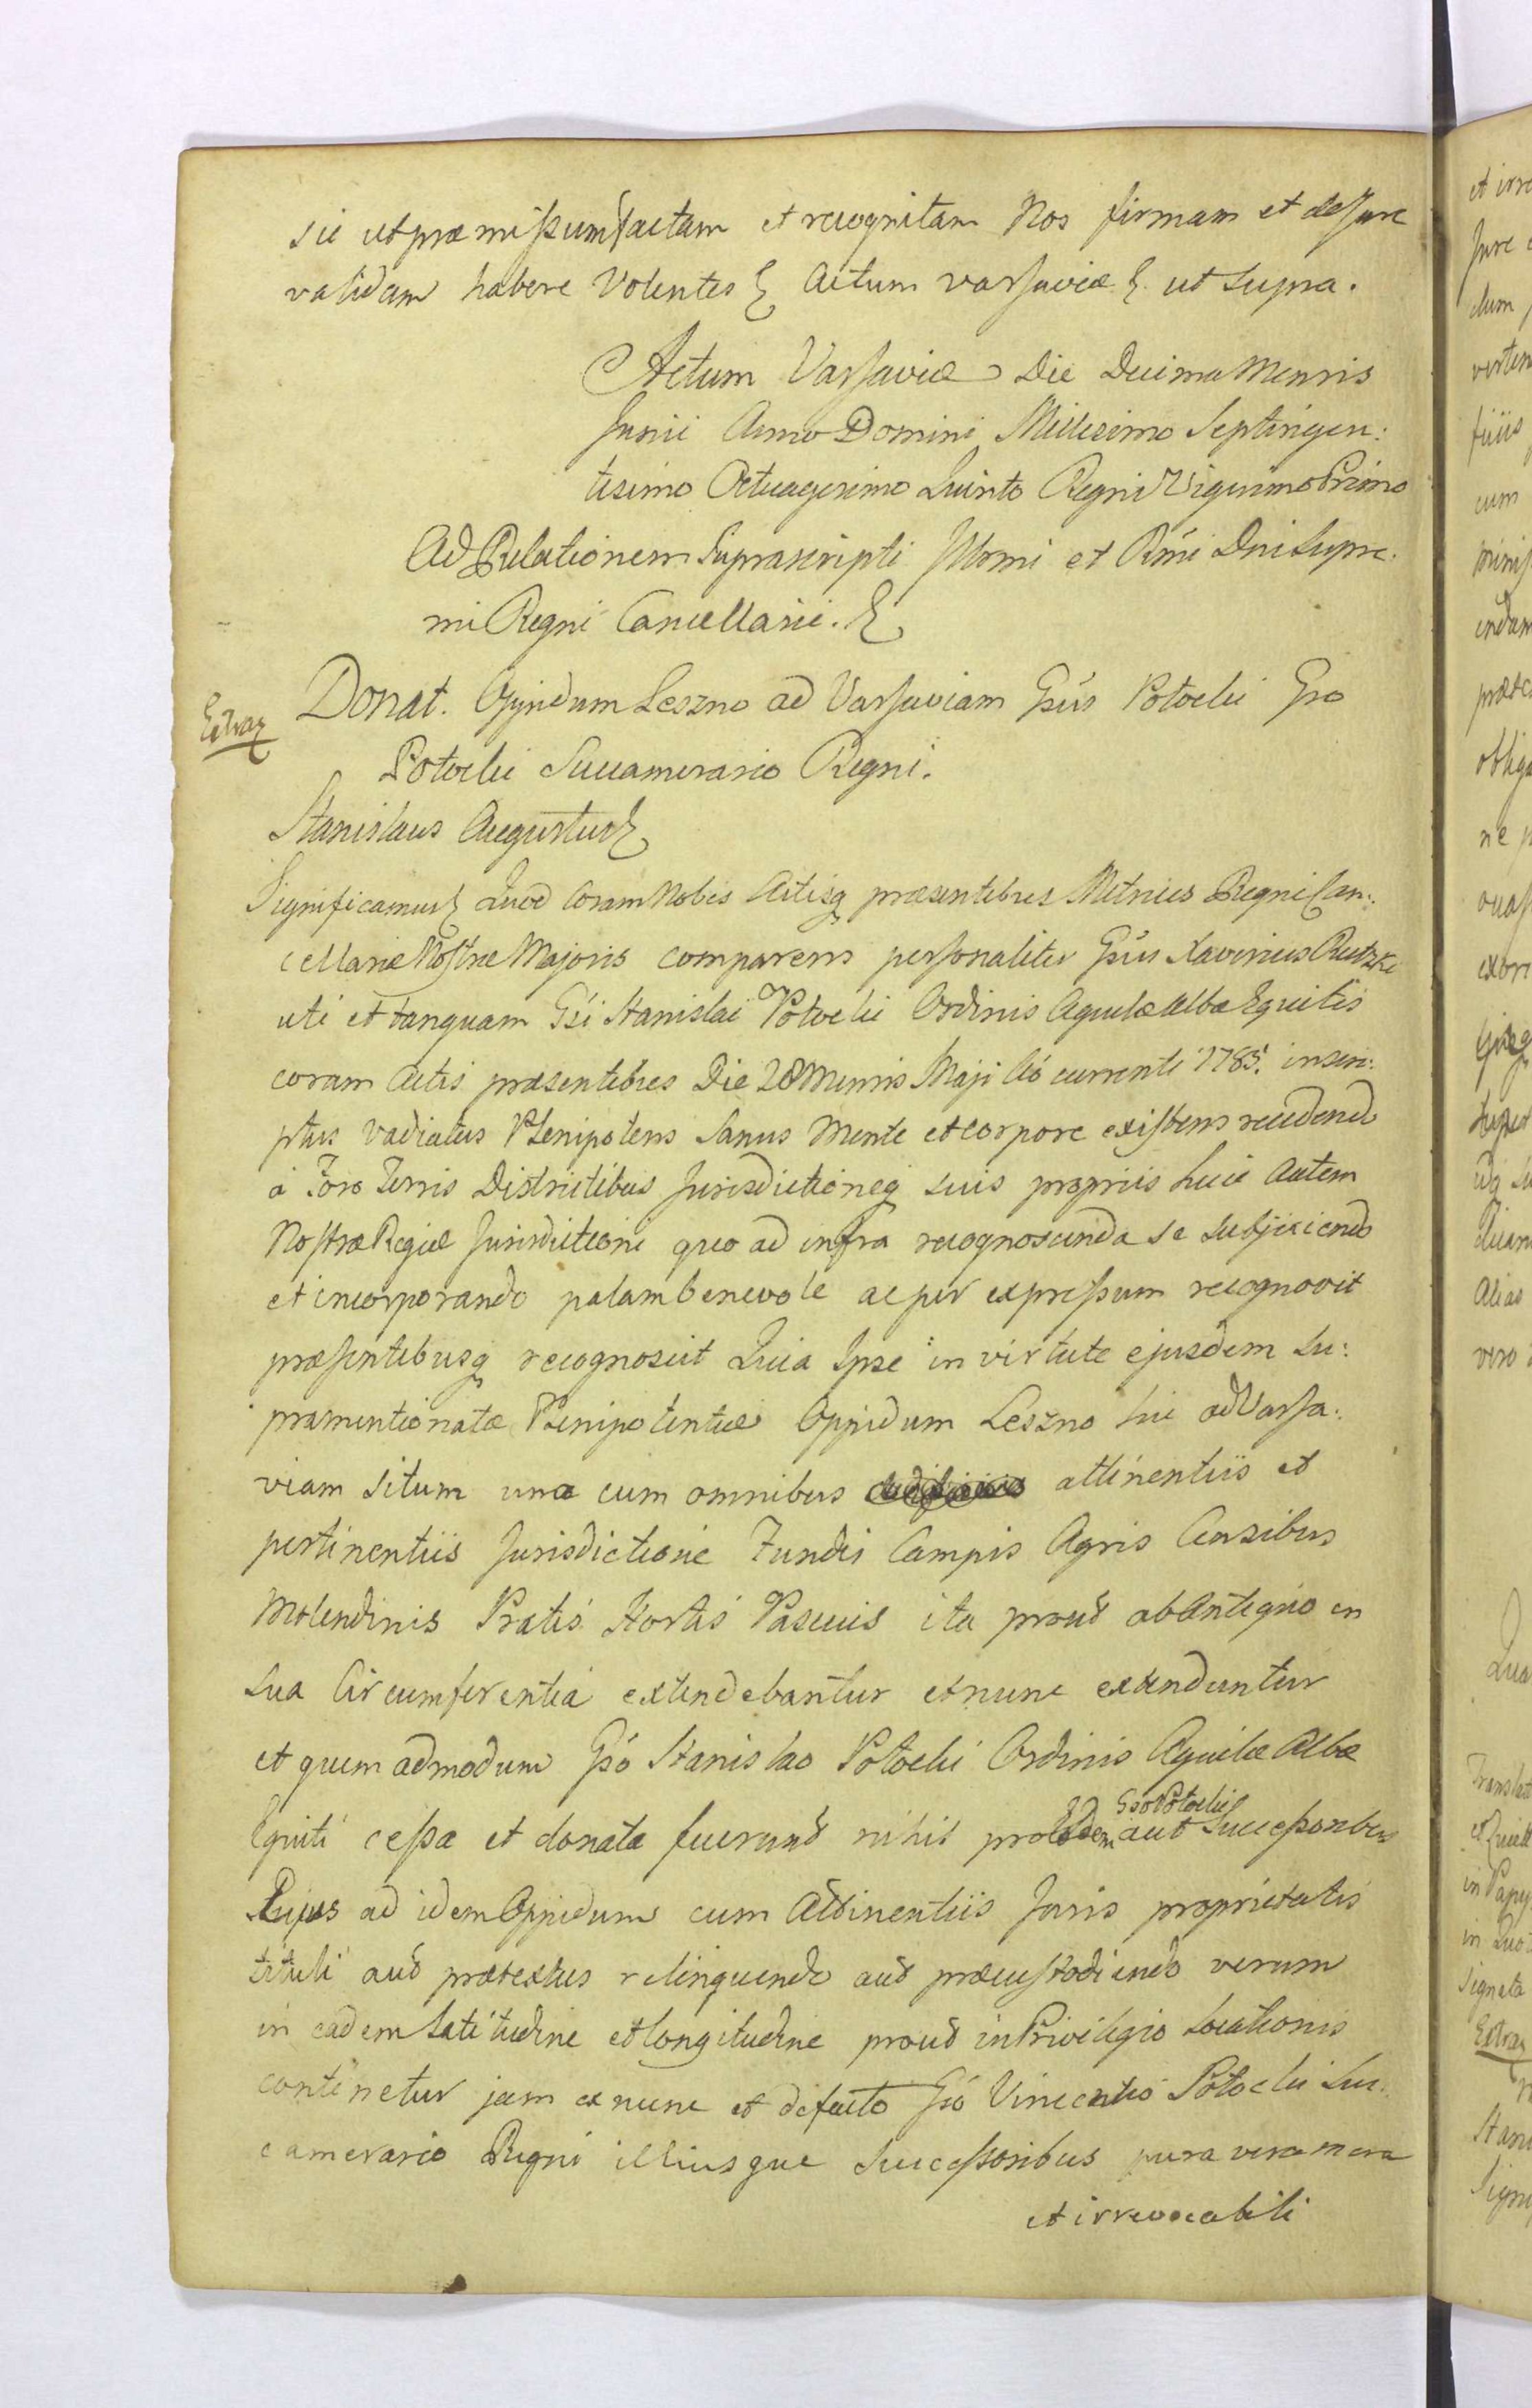 sic ut præmissum factam et recognitam Nos firmam et de Jure
validam habere Volentes &c Actum varsaviæ &c ut supra.
Actum Varsaviæ Die Decima Mensis
Junii Anno Domini Millesimo Septingen:
tesimo Octuagesimo Quinto Regni Vigesimo Primo
Ad Relationem Suprascripti Illrmi et Rmi Dni Supre.
mi Regni Cancellarii. &c
Extrax
Donat. Oppidum Leszno ad Varsaviam Gsus Potocki Gso
Potocki Succamerario Regni.
Stanislaus Augustus &c
Significamus &c Quod Coram Nobis Actisq præsentibus Metrices Regni Can:
cellariæ Nostræ Majoris comparens personaliter Gsus Xaverius Rutzki
uti et tanquam Gsi Stanislai Potocki Ordinis Aquilæ Albæ Equitis
coram Actis præsentibus Die 28 Mensis Maji Ao currenti 1785. inscri:
ptus Vadiatus Plenipotens Sanus Mente et corpore existens recedendo
a Foro Terris Districtibus Jurisdictioneq suis propriis huic Autem
Nostræ Regiæ Jurisdictioni quo ad infra recognoscenda se subjiciendo
et incorporando palam benevole ac per expressum recognovit
præsentibusq recognoscit Quia Ipse in virtute ejusdem Su:
pramentionatæ Plenipotentiæ Oppidum Leszno hic ad Varsa:
viam situm una cum omnibus attinentiis et
pertinentiis Jurisdictione Fundis Campis Agris Censibus
Molendinis Pratis Hortis Pascuis ita prout ab Antiquo in
sua Circumferentia extendebantur et nunc extenduntur
et quemadmodum Gso Stanislao Potocki Ordinis Aquilæ Albæ
Equiti cessa et donata fuerunt nihil pro eodem Gso Potocki aut Successoribus
Ejus ad idem Oppidum cum Attinentiis Juris proprietatis
tituli aut prætextus relinquendo aut præcustodiendo verum
in eadem latitudine et longitudine prout in Privilegio Locationis
continetur jam ex nunc et de facto Gso Vincentio Potocki Suc:
camerario Regni illiusque Successoribus pura vera mera
et irrevocabili